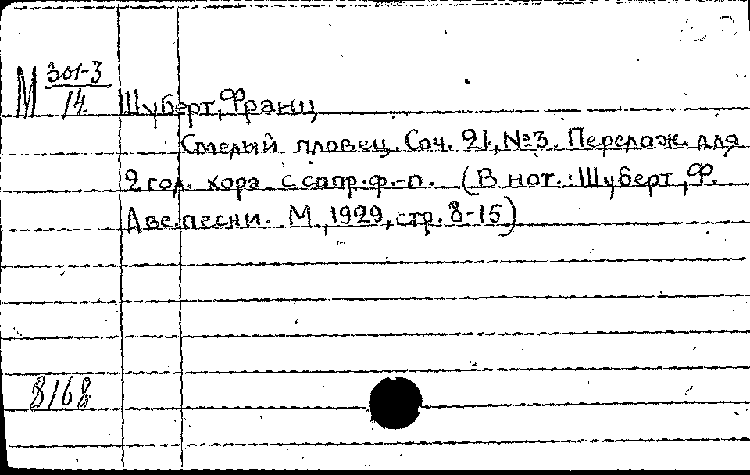 М 301-3/14
Шуберт, Франц
Смелый пловец. Соч. 21, №3. Перелож. для
2 гол. хора с сопр. ф.-п. (В нот.: Шуберт, Ф.
Две песни. М., 1929, стр. 8-15)
8168